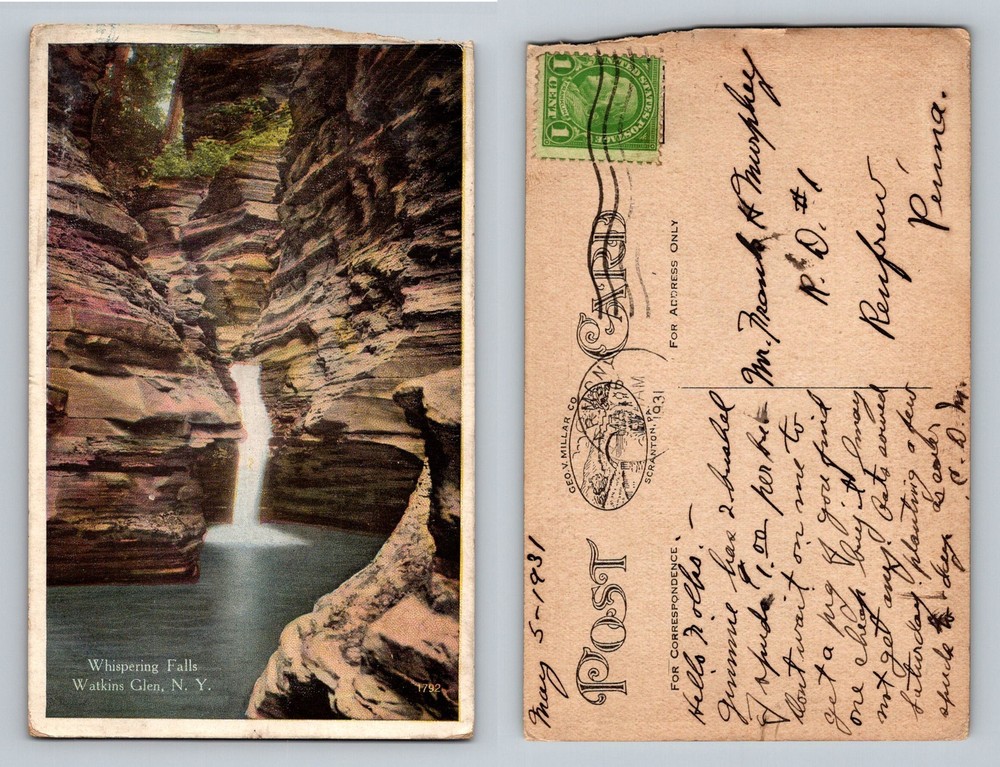 Whispering Falls
Watkins Glen, N. Y.
1792
1 CENT 1
UNITED STATES POSTAGE
POST CARD
GEO. V. MILLAR CO
SCRANTON, PA.
1931
FOR CORRESPONDENCE
FOR ADDRESS ONLY
May 5-1931
Hello Folks.-
Jimmie has 2 bushel
of spuds 1.00 per bu-
Dont wait on me to
get a pig if you find
one cheap buy it I may
not get any. Oats sowed
Saturday planting a few
spuds this week.
C. D. M.
Mr. Frank H Murphey
R. D. #1
Renfrew,
Penna.